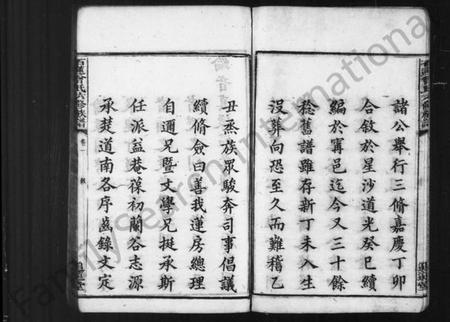 諸公舉行三脩嘉慶丁卯
合敘於星沙道光癸巳續
編於甯邑迄今又三十餘
稔舊譜雖存新丁未入生
沒葬向恐至久而難稽乙
丑烝族眾駿奔司事倡議
續脩僉曰善我運房總理
自邇兄暨文學兄挺承斯
任派益巷葆初蘭谷志源
承楚道南各序齒錄文定
卷一
FamilySearch International